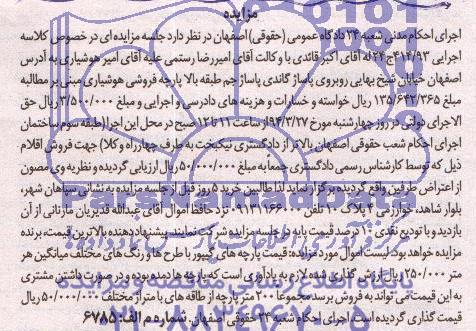 مزایده
اجرای احکام مدنی شعبه ۲۴ دادگاه عمومی (حقوقی) اصفهان در نظر دارد جلسه مزایده ای در خصوص کلاسه
اجرایی ۴۱۴/۹۳ج۲۴ له آقای اکبر قائدی با وکالت آقای امیررضا رستمی علیه آقای امیر هوشیاری به آدرس
اصفهان خیابان شیخ بهایی روبروی پاساژ گاندی پاساژ جم طبقه بالا پارچه فروشی هوشیاری مبنی بر مطالبه
۱۳۵/۶۴۲/۳۶۵ ریال خواسته و خسارات و هزینه های دادرسی و اجرایی و مبلغ ۳/۵۰۰/۰۰۰ ریال حق
الاجرای دولتی در روز چهارشنبه مورخ ۹۴/۳/۲۷ از ساعت ۱۱ تا ۱۲ صبح در محل این اجرا (طبقه سوم ساختمان
اجرای احکام شعب حقوقی اصفهان بالاتر از دادگستری نیکبخت به طرف چهارراه وکلا) جهت فروش اقلام
ذیل که توسط کارشناس رسمی دادگستری جمعا به مبلغ ۵۰/۰۰۰/۰۰۰ ریال ارزیابی گردیده و نظریه وی مصون
از اعتراض طرفین واقع گردیده برگزار نماید لذا طالبین خرید ۵ روز قبل از جلسه مزایده به نشانی سپاهان شهر،
بلوار شاهد، خوارزمی ۴ پلاک ۱۰ تلفن ۰۹۱۳۱۱۶۶۰۰ نزد حافظ اموال آقای عبدالله قدیریان مارنانی از آن
بازدید و با تودیع نقدی ۱۰ درصد قیمت پایه در جلسه مزایده شرکت نمایند. پیشنهاد دهنده بالاترین قیمت، برنده
مزایده خواهد بود. لیست اموال مورد مزایده: قیمت پارچه های گیپور با طرح ها و رنگ های مختلف میانگین هر
متر ۲۵۰/۰۰۰ ریال ارزش گذاری شده لازم به یادآوری است که پارچه ها دمده بوده و در صورت داشتن مشتری
به این قیمت می تواند به فروش برسد مجموعا ۲۰۰ متر پارچه از طاقه های با متراژ مختلف ۵۰/۰۰۰/۰۰۰ ریال
ارزش گذاری گردیده است. اجرای احکام شعبه ۲۴ حقوقی اصفهان. شماره م الف: ۶۷۸۵
ParsNamadData
پایگاه اطلاع رسانی مناقصه و مزایده